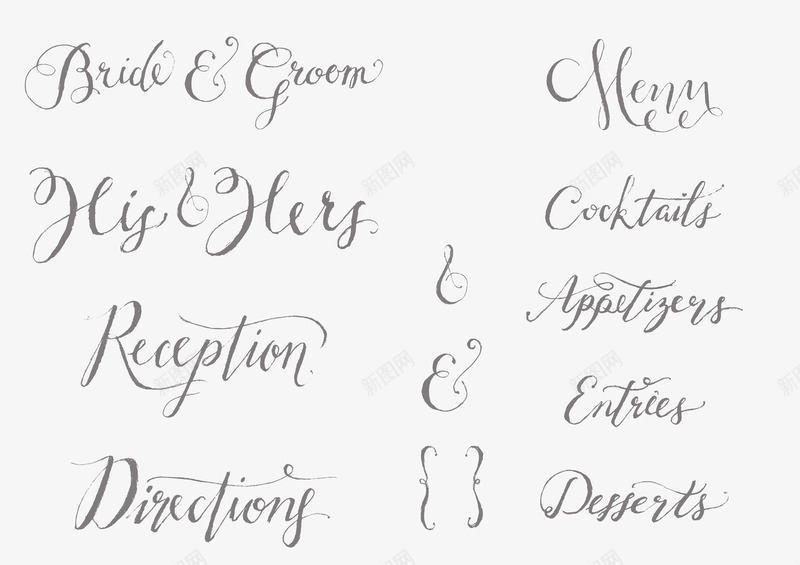 Bride & Groom
His & Hers
Reception
Directions
&
&
{ }
Menu
Cocktails
Appetizers
Entrées
Desserts
新图网